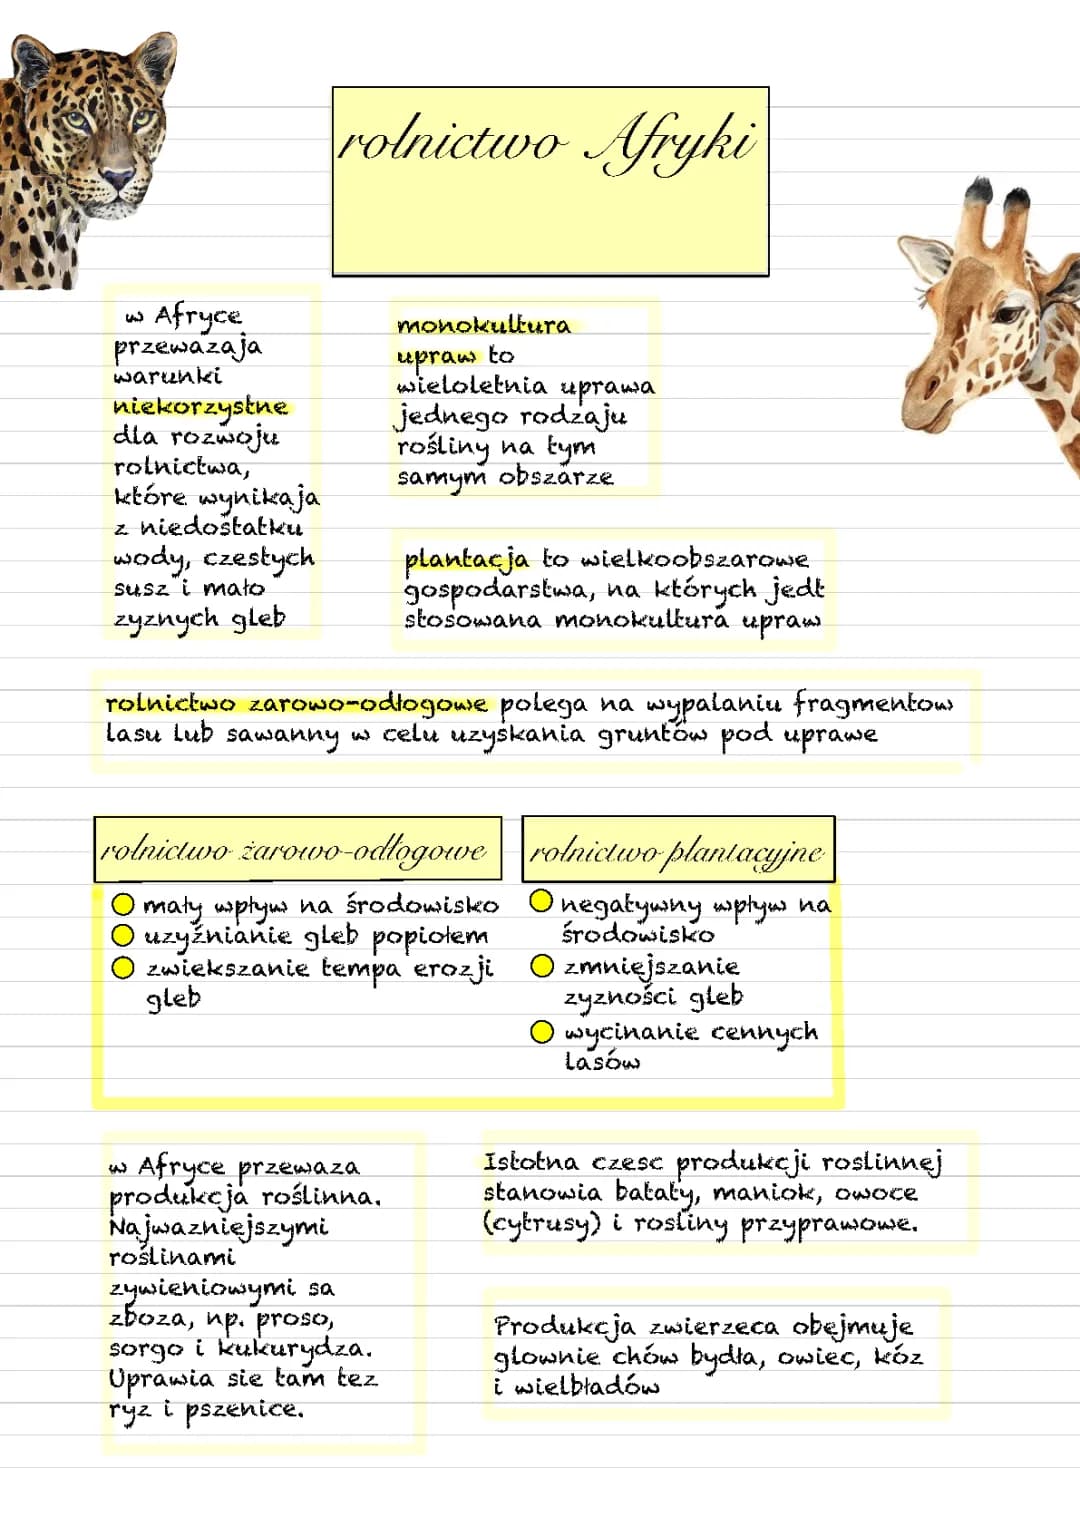 rolnictwo Afryki
w Afryce
przewazaja
warunki
niekorzystne
dla rozwoju
rolnictwa,
które wynikaja
z niedostatku
wody, czestych
susz i mało
zyznych gleb
monokultura
upraw to
wieloletnia uprawa
jednego rodzaju
rośliny na tym
samym obszarze
plantacja to wielkoobszarowe
gospodarstwa, na których jedt
stosowana monokultura upraw
rolnictwo zarowo-odłogowe polega na wypalaniu fragmentow
lasu lub sawanny w celu uzyskania gruntów pod uprawe
rolnictwo żarowo-odłogowe
mały wpływ na środowisko
uzyźnianie gleb popiołem
zwiekszanie tempa erozji
gleb
rolnictwo plantacyjne
negatywny wpływ na
środowisko
zmniejszanie
zyzności gleb
wycinanie cennych
lasów
w Afryce przewaza
produkcja roślinna.
Najwazniejszymi
roślinami
zywieniowymi sa
zboza, np. proso,
sorgo i kukurydza.
Uprawia sie tam tez
ryz i pszenice.
Istotna czesc produkcji roslinnej
stanowia bataty, maniok, owoce
(cytrusy) i rosliny przyprawowe.
Produkcja zwierzeca obejmuje
glownie chów bydła, owiec, kóz
i wielbładów